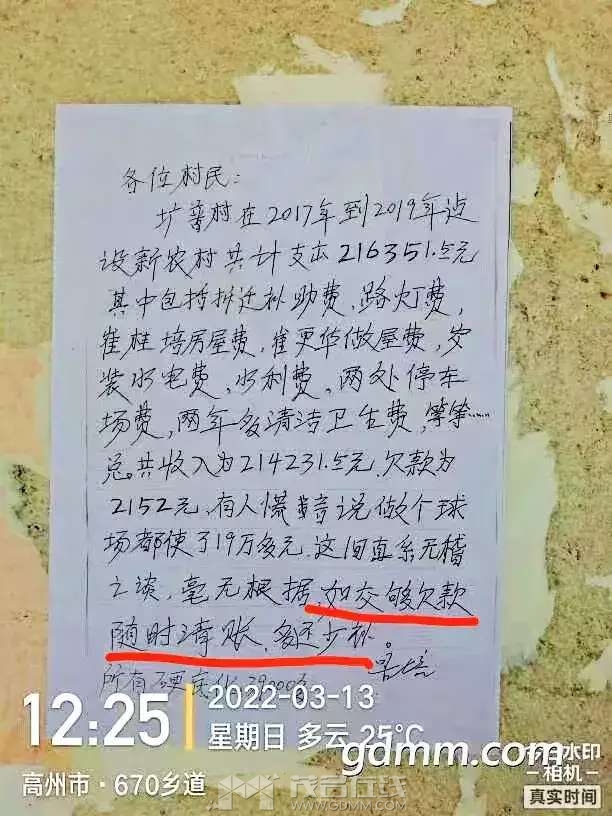 各位村民：
扩寄村在2017年到2019年边
设新农村共计支出216351.5元
其中包括拆迁补助费，路灯费，
崔桂培房屋费，崔更华做屋费，安
装水电费，水利费，两处停车
场费，两年多清洁卫生费，等等……
总共收入为214231.5元，欠款为
2152元，有人慌音说做个球
场都使了19万多元，这间直系无稽
之谈，毫无根据，如交够欠款
随时清账，多还少补。
所有硬
12:25
2022-03-13
星期日 多云 25°C
高州市·670乡道
gdmm.com
水印
相机
真实时间
茂名在线
WWW.GDMM.COM